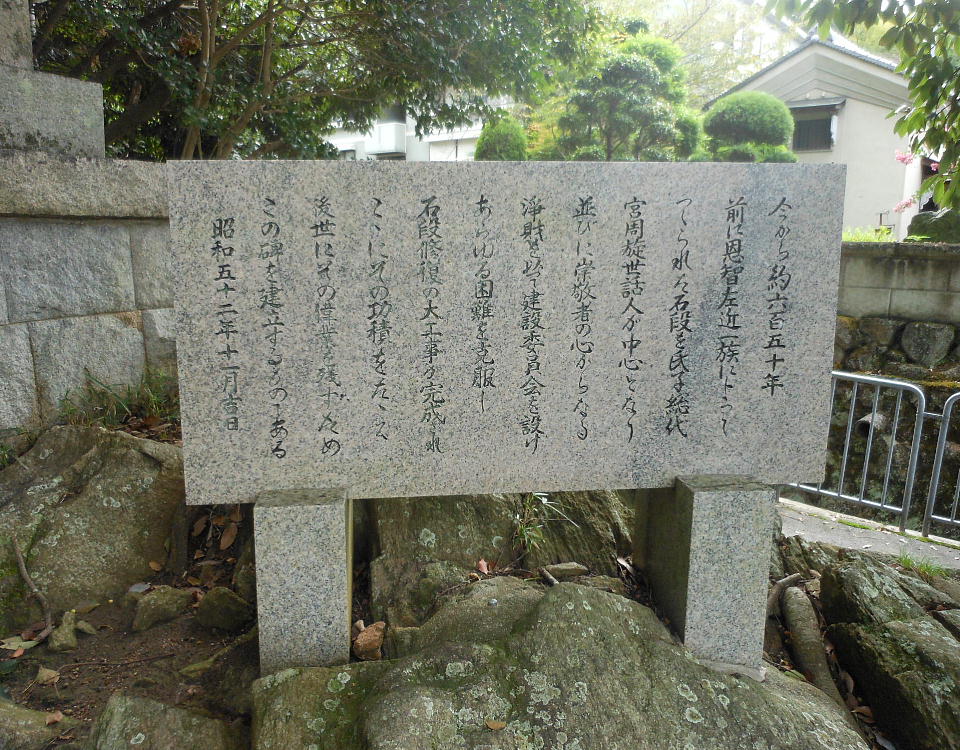 今から約六百五十年
前に恩智左近一族によって
つくられた石段を氏子総代
宮周旋世話人が中心となり
並びに崇敬者の心からなる
浄財を以て建設委員会を設け
あらゆる困難を克服し
石段修復の大工事が完成され
ここにその功績をたたえ
後世にその偉業を残すため
この碑を建立するものである
昭和五十二年十一月吉日